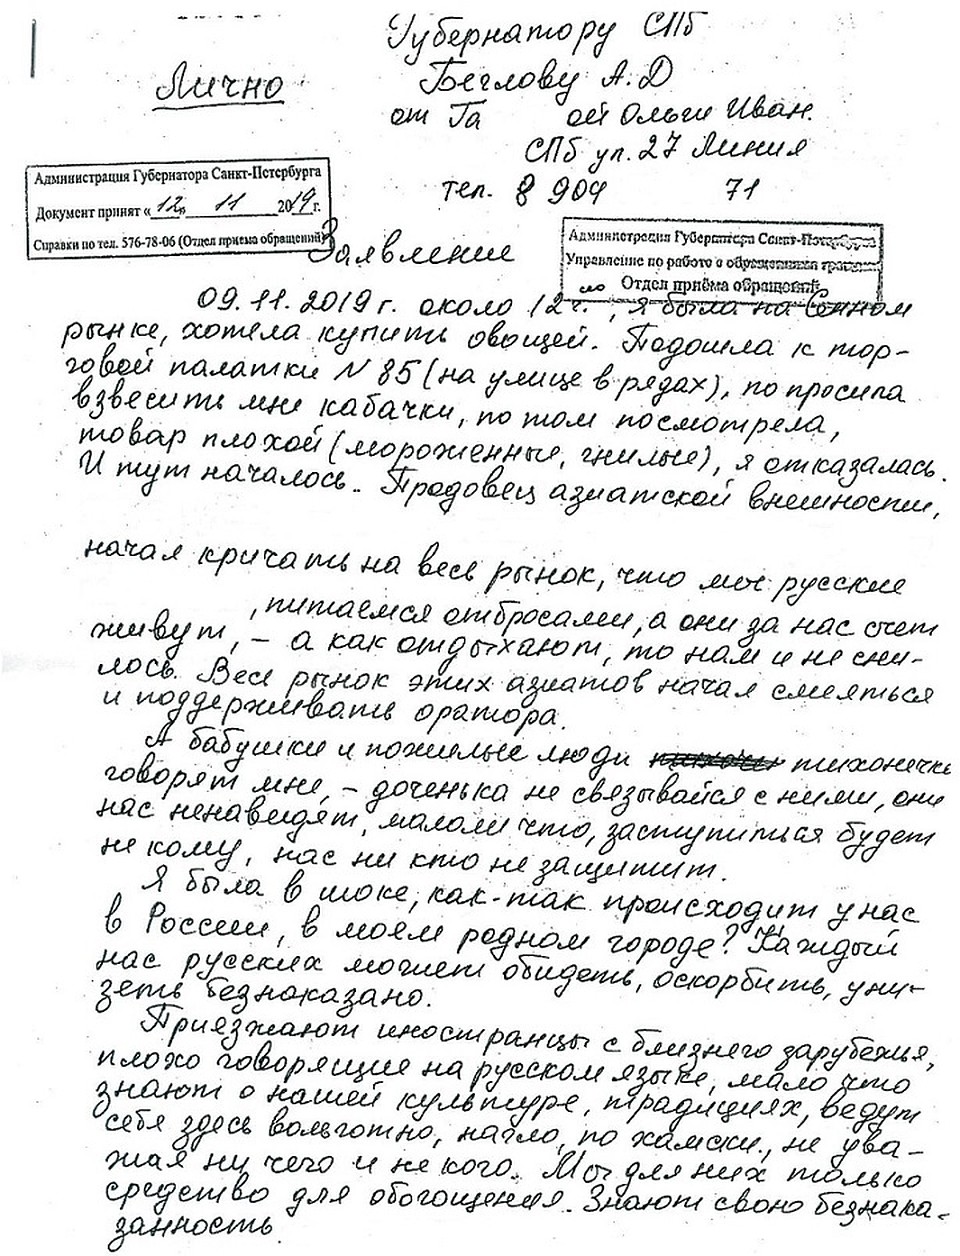 Губернатору СПб
Лично
Беглову А. Д
от Га ой Ольги Иван.
СПб ул. 27 Линия
тел. 8 909 71
Администрация Губернатора Санкт-Петербурга
Документ принят «12» 11 2019 г.
Справки по тел. 576-78-06 (Отдел приема обращений)
Администрация Губернатора Санкт-Петербурга
Управление по работе с обращениями граждан
Отдел приёма обращений
Заявление
09.11.2019 г. около 12 г., я была на Сенном
рынке, хотела купить овощей. Подошла к тор-
говой палатки N 85 (на улице в рядах), по просила
взвесить мне кабачки, по том посмотрела,
товар плохой (мороженные, гнилые), я отказалась.
И тут началось. Продовец азиатской внешности,
начал кричать на весь рынок, что мы русские
, питаемся отбросами, а они за нас счет
живут, – а как отдыхают, то нам и не сни-
лось. Весь рынок этих азиатов начал смеяться
и поддерживать оратора.
А бабушки и пожилые люди тихонечко
говорят мне, – доченька не связывайся с ними, они
нас ненавидят, малоли что, заступиться будет
не кому, нас ни кто не защитит.
Я была в шоке, как-так происходит у нас
в России, в моем родном городе? Каждый
нас русских может обидеть, оскорбить, уни-
зеть безноказано.
Приезжают иностранцы с ближнего зарубежья,
плохо говорящие на русском языке, мало что
знают о нашей культуре, традициях, ведут
себя здесь вольготно, нагло, по хамски, не ува-
жая ни чего и не кого. Мы для них только
средство для обогощения. Знают свою безнака-
занность